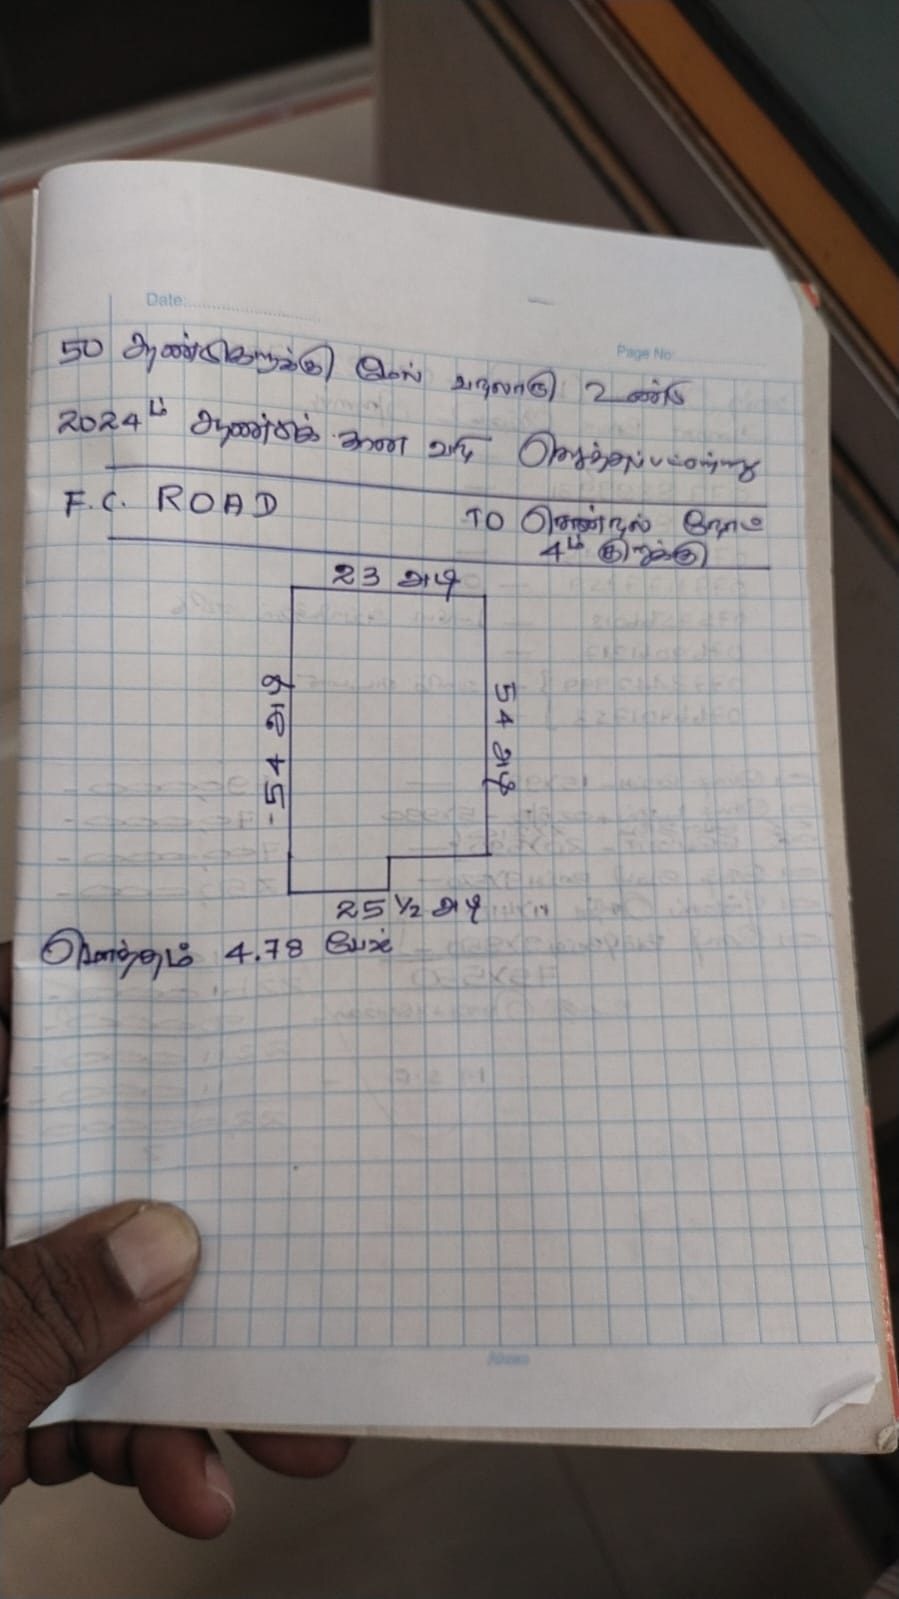 Date:
Page No:
50 ஆண்டுகளுக்கு மேல் வரலாறு உண்டு
2024ம் ஆண்டுக்கான வரி செலுத்தப்பட்டுள்ளது
F.C. ROAD
TO செண்நல் ரோட்
4ம் குறுக்கு
23 அடி
54 அடி
54 அடி
25 1/2 அடி
மொத்தம் 4.78 பேர்ச்